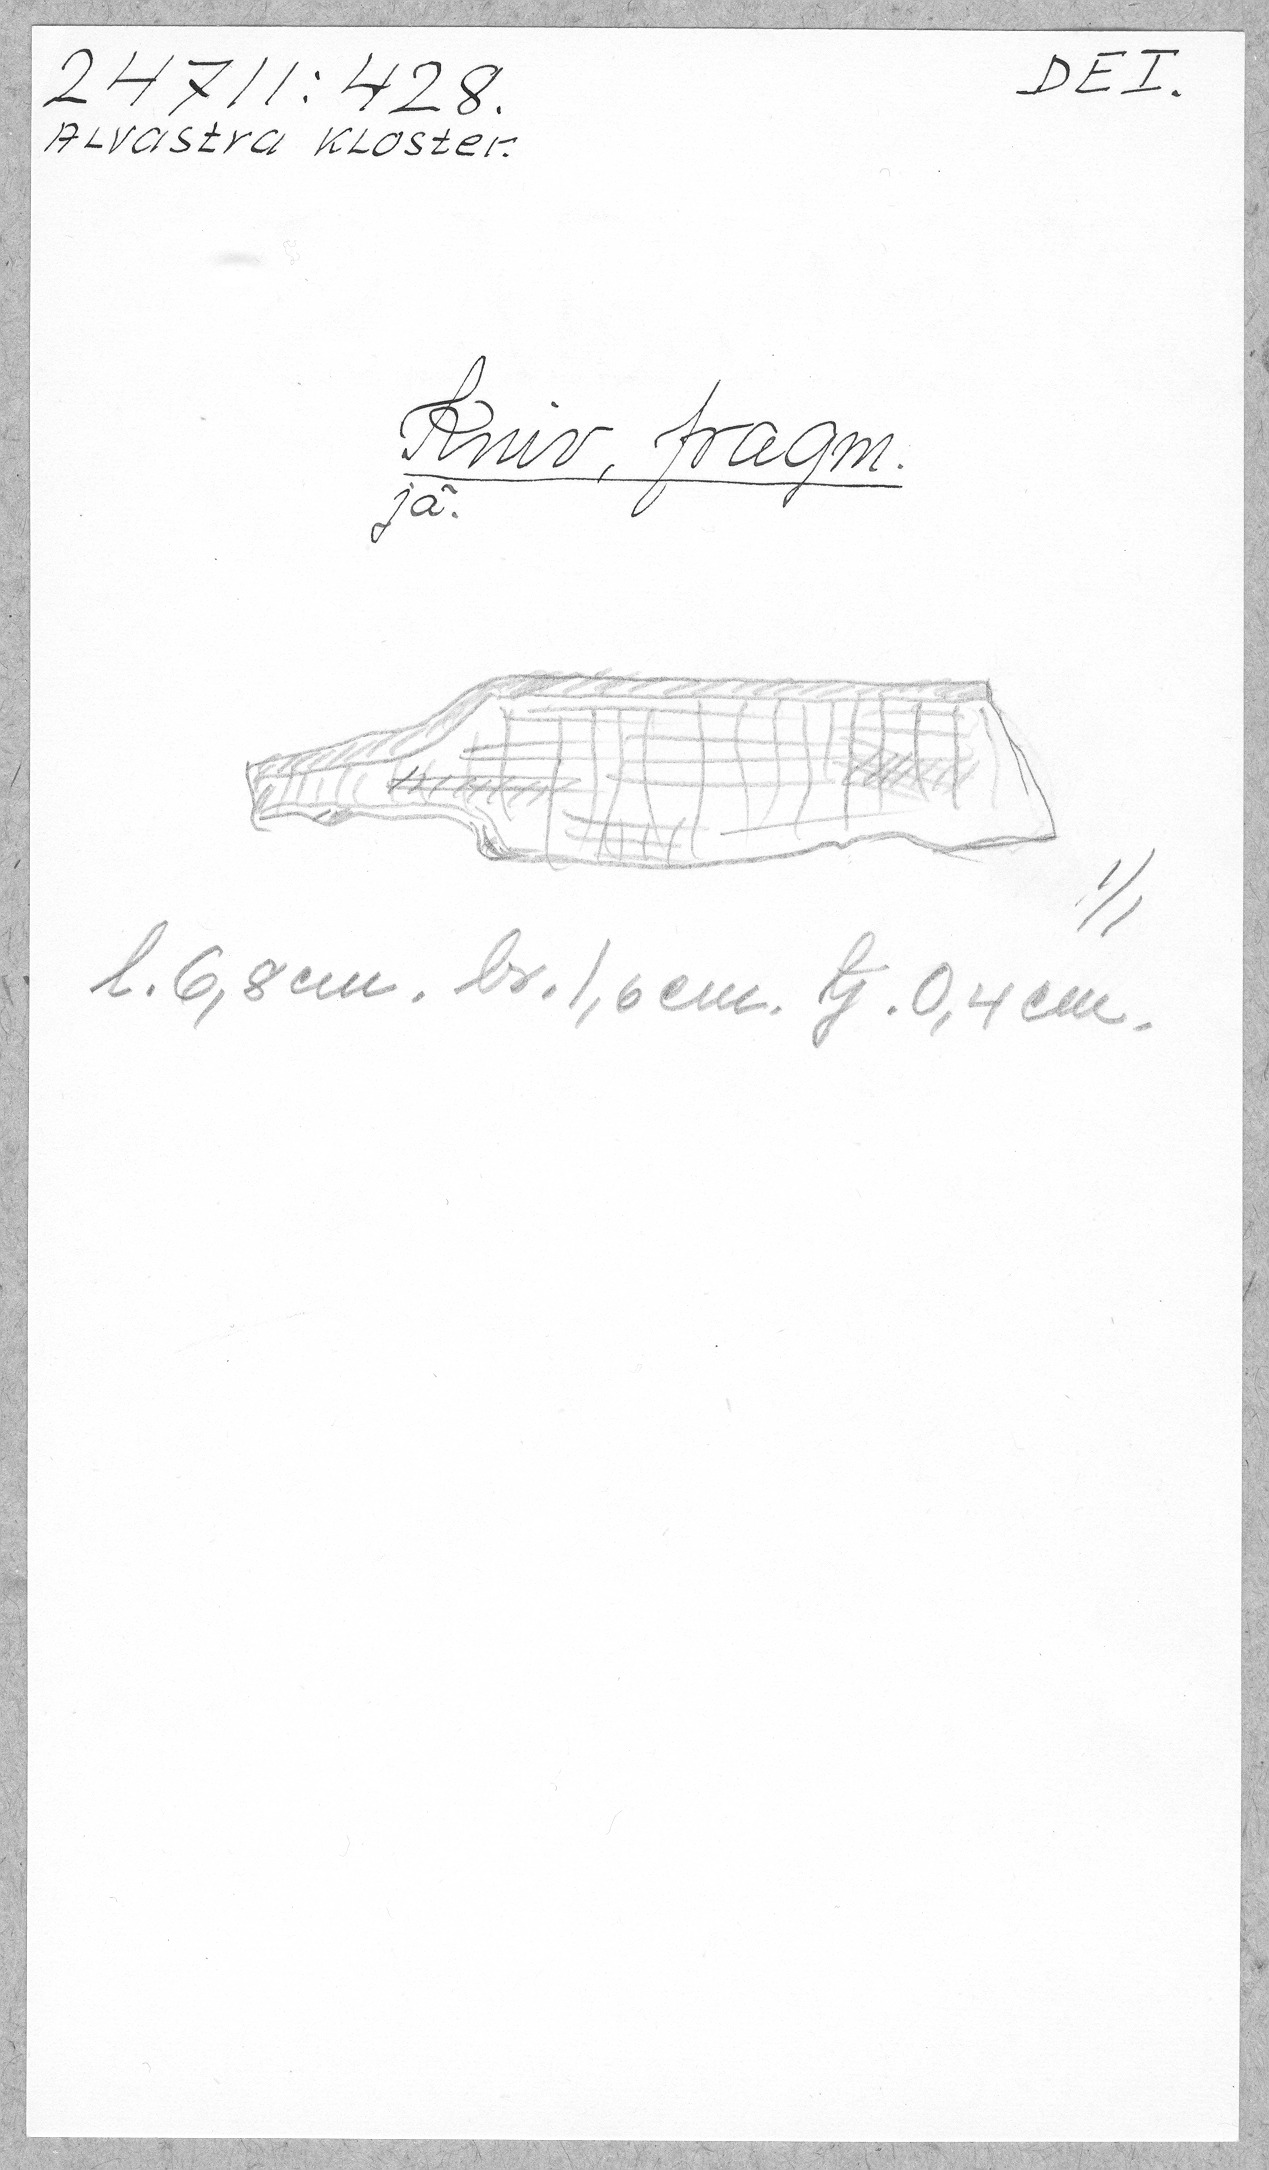 24711:428.
DEI.
Alvastra kloster.
Kniv, fragm.
jä.
1/1
l. 6,8 cm. br. 1,6 cm. tj. 0,4 cm.